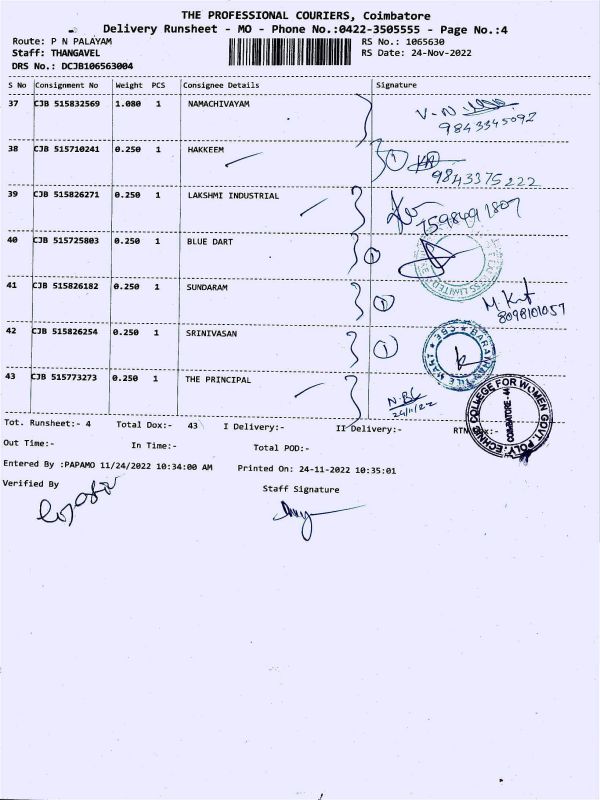 THE PROFESSIONAL COURIERS, Coimbatore
Delivery Runsheet - MO - Phone No.:0422-3505555 - Page No.:4
Route: P N PALAYAM RS No.: 1065630
Staff: THANGAVEL RS Date: 24-Nov-2022
DRS No.: DCJB106563004
S No Consignment No Weight PCS Consignee Details Signature
37 CJB 515832569 1.080 1 NAMACHIVAYAM
9843345092
38 CJB 515710241 0.250 1 HAKKEEM
9843375222
39 CJB 515826271 0.250 1 LAKSHMI INDUSTRIAL
7598491807
40 CJB 515725803 0.250 1 BLUE DART
41 CJB 515826182 0.250 1 SUNDARAM
8098101057
42 CJB 515826254 0.250 1 SRINIVASAN
43 CJB 515773273 0.250 1 THE PRINCIPAL
24/11/22
COLLEGE FOR WOMEN GOVT. POLYTECHNIC
COIMBATORE - 44
Tot. Runsheet:- 4 Total Dox:- 43 I Delivery:- II Delivery:- RTN
Out Time:- In Time:- Total POD:-
Entered By :PAPAMO 11/24/2022 10:34:00 AM Printed On: 24-11-2022 10:35:01
Verified By Staff Signature